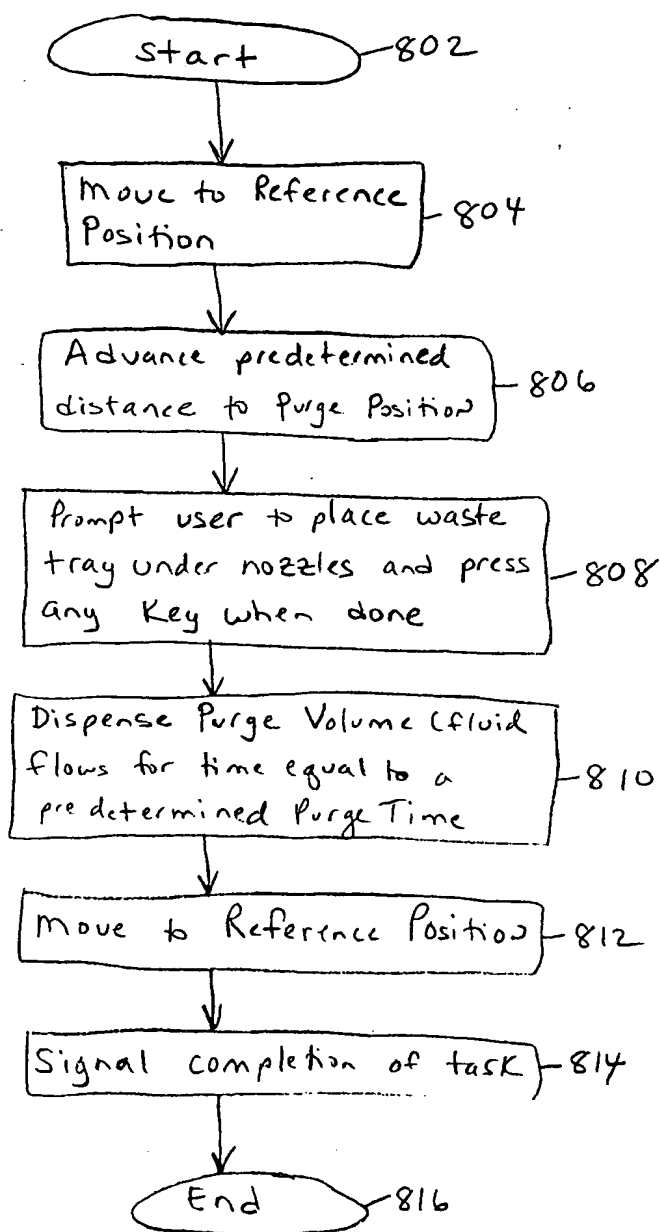 Start
802
Move to Reference
Position
804
Advance predetermined
distance to Purge Position
806
Prompt user to place waste
tray under nozzles and press
any Key when done
808
Dispense Purge Volume (fluid
flows for time equal to a
predetermined Purge Time
810
Move to Reference Position
812
Signal completion of task
814
End
816